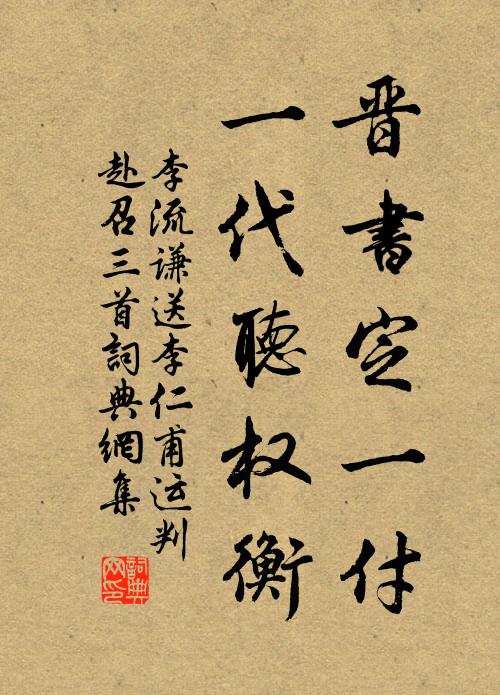 晋書定一付
一代聽权衡
李流谦送李仁甫运判
赴召三首詞典網集
詞典
网印